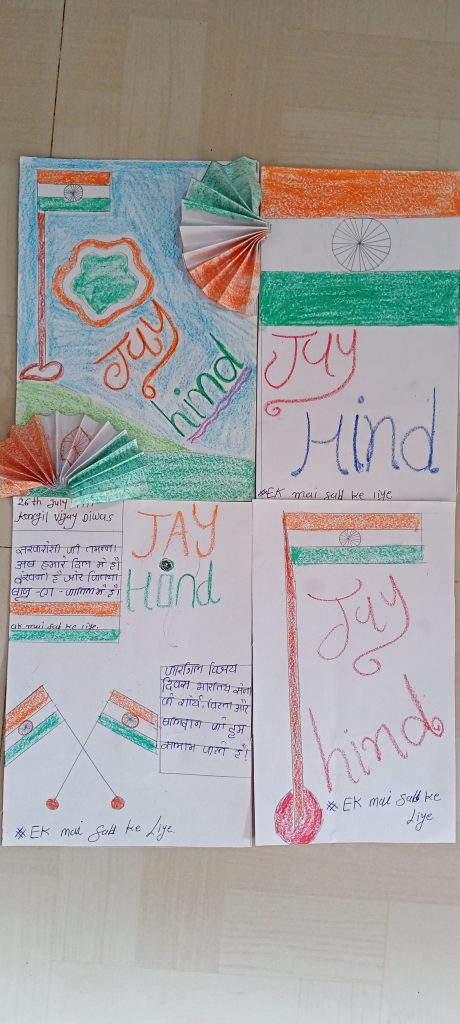 Jay
hind
Jay
Hind
#EK mai sab ke liye
26th July
Kargil Vijay Diwas
सरफरोशी की तमन्ना
अब हमारे दिल में है
देखना है और कितना
बाजु-ए-कातिल में है।
EK mai sab ke liye.
JAY
Hind
कारगिल विजय
दिवस भारतीय सेना
की शौर्य, विरता और
बलिदान को हम
सलाम करते है!
#EK mai sab ke Liye
Jay
hind
#EK mai sab ke
Liye